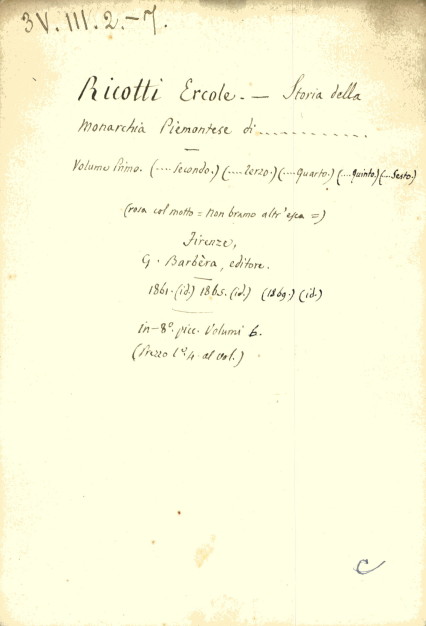 3V. III. 2.-7.
Ricotti Ercole. — Storia della
Monarchia Piemontese di..............
Volume Primo. (....Secondo.) (....Terzo.) (....Quarto.) (....Quinto.) (....Sesto.)
(rosa col motto = Non bramo altr'esca =)
Firenze,
G. Barbèra, editore.
1861. (id.) 1865. (id.) (1869.) (id.)
in-8º. picc. Volumi 6.
(Prezzo Lº. 4. al vol.)
C